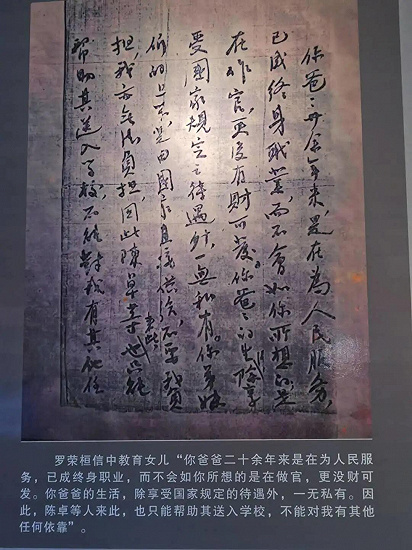 你爸々廿余年来,是在為人民服務,
已成终身職業,而不會如你所想的是
在作官,更没有財可發。你爸々的生活,除享
受國家規定之待遇外,一無私有。你弟妹
们的是由國家直接供给,不要我負
担,我亦無法負担,因此陳卓等此来也只能
帮助其送入学校,不能對我有其他任
罗荣桓信中教育女儿“你爸爸二十余年来是在为人民服
务,已成终身职业,而不会如你所想的是在做官,更没财可
发。你爸爸的生活,除享受国家规定的待遇外,一无私有。因
此,陈卓等人来此,也只能帮助其送入学校,不能对我有其他
任何依靠”。